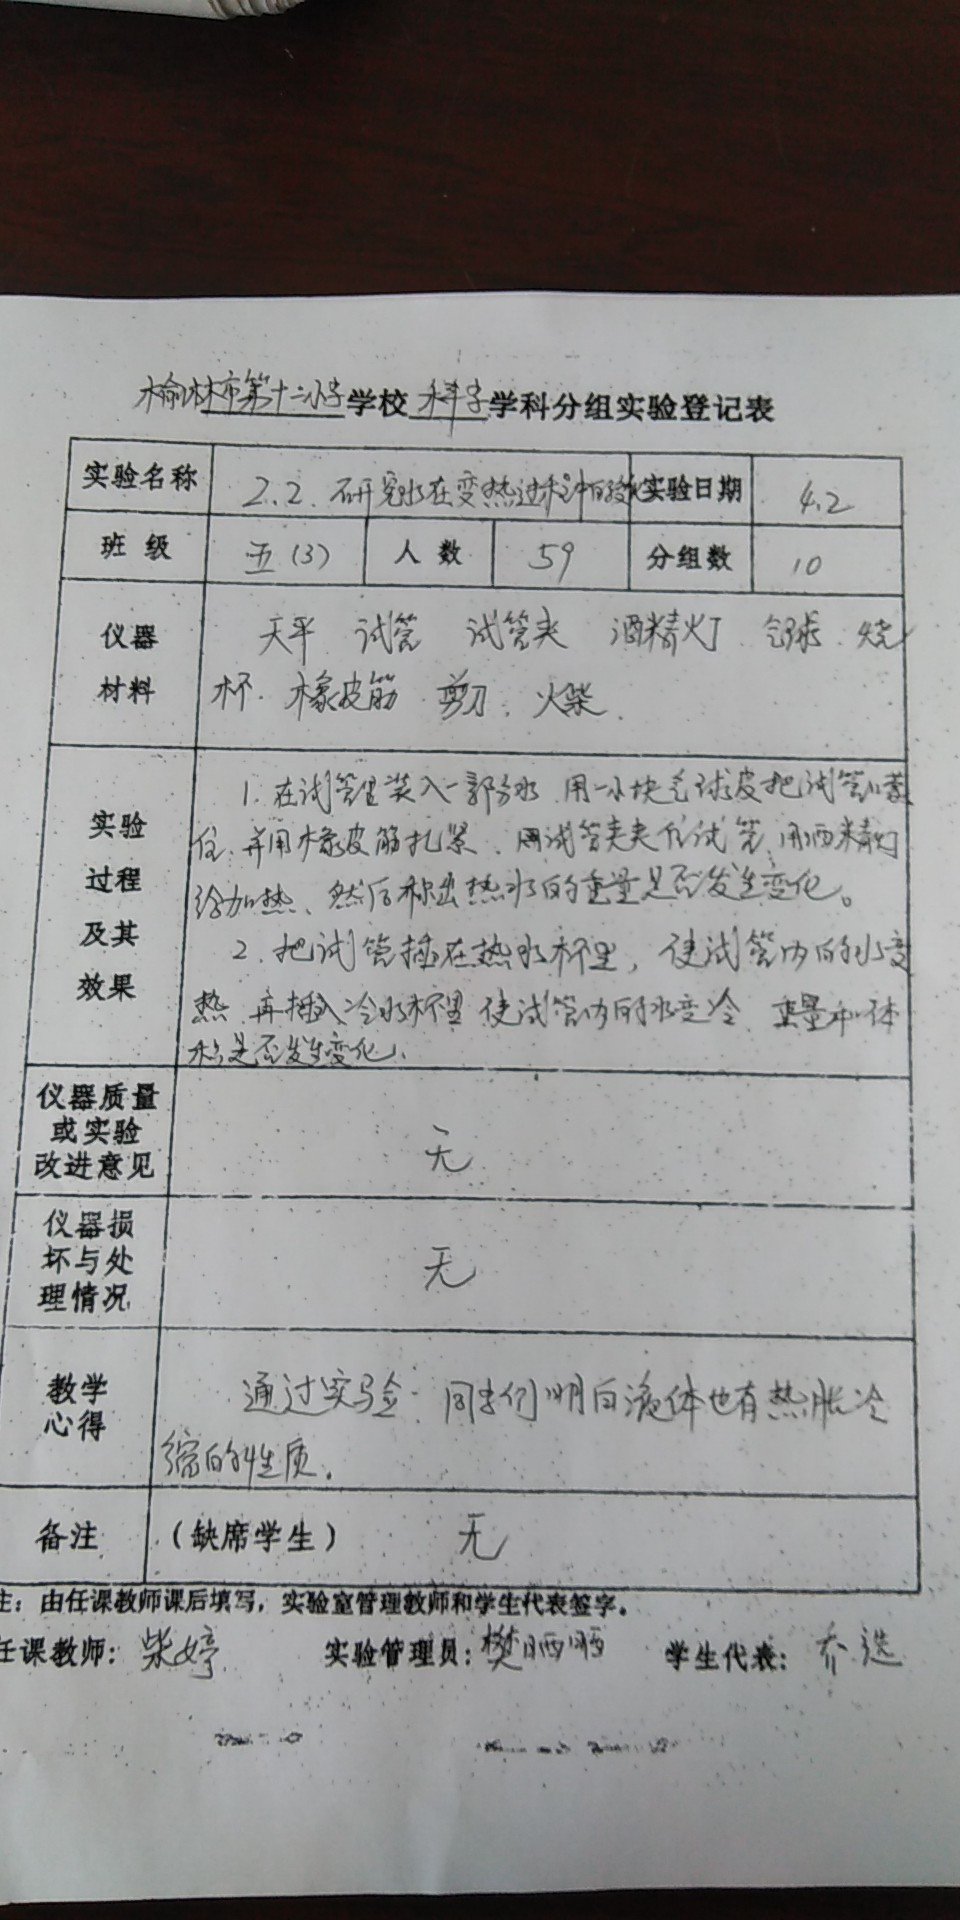 榆林市第十二小学学校科学学科分组实验登记表
实验名称 2.2.研究水在变热过程中的变化 实验日期 4.2
班级 五(3) 人数 59 分组数 10
仪器材料
天平 试管 试管夹 酒精灯 气球 烧
杯.橡皮筋.剪刀.火柴.
实验过程及其效果
1.在试管里装入一部分水 用一小块气球皮把试管口蒙
住.并用橡皮筋扎紧、用试管夹夹住试管,用酒精灯
给加热、然后称出热水的重量是否发生变化。
2.把试管插在热水杯里,使试管内的水变
热.再插入冷水杯里 使试管内的水变冷.重量和体
积是否发生变化.
仪器质量或实验改进意见
无
仪器损坏与处理情况
无
教学心得
通过实验.同学们明白液体也有热胀冷
缩的性质.
备注 (缺席学生) 无
注:由任课教师课后填写,实验室管理教师和学生代表签字。
任课教师:柴婷 实验管理员:樊晒晒 学生代表:乔